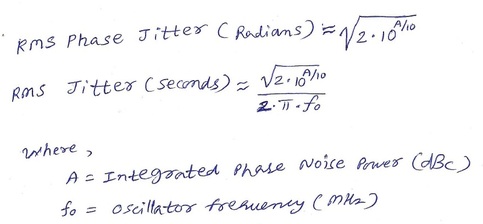 RMS Phase Jitter (Radians) ≈ √2·10^A/10
RMS Jitter (seconds) ≈ √2·10^A/10 / 2·π·fo
where,
A = Integrated Phase Noise Power (dBc)
fo = oscillator freuency (MHz)